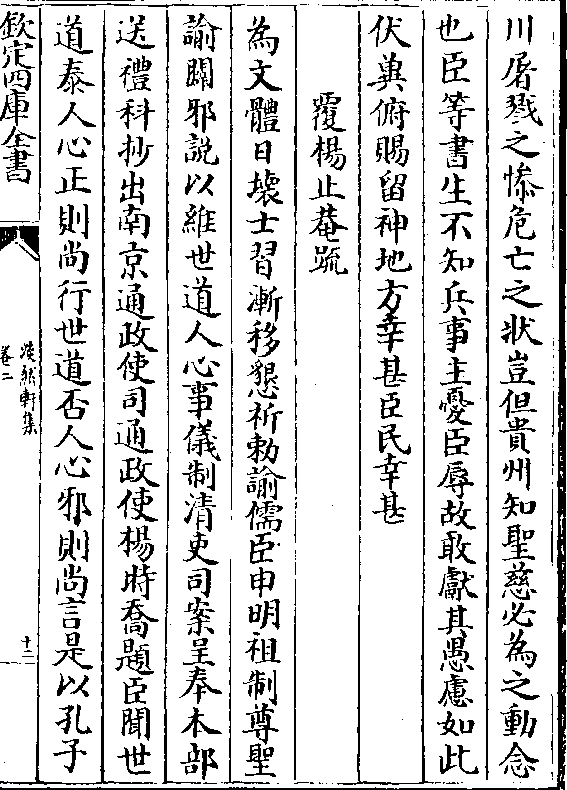 川屠戮之慘危亡之狀豈但貴州知聖慈必為之動念
也臣等書生不知兵事主憂臣辱故敢獻其愚慮如此
伏兾俯賜留神地方幸甚臣民幸甚
覆楊止菴疏
為文體日壊士習漸移懇祈勅諭儒臣申明祖制尊聖
諭闢邪說以維世道人心事儀制清吏司案呈奉本部
送禮科抄出南京通政使司通政使楊時喬題臣聞世
道泰人心正則尚行世道否人心邪則尚言是以孔子
欽定四庫全書
淡然軒集
卷二
十二